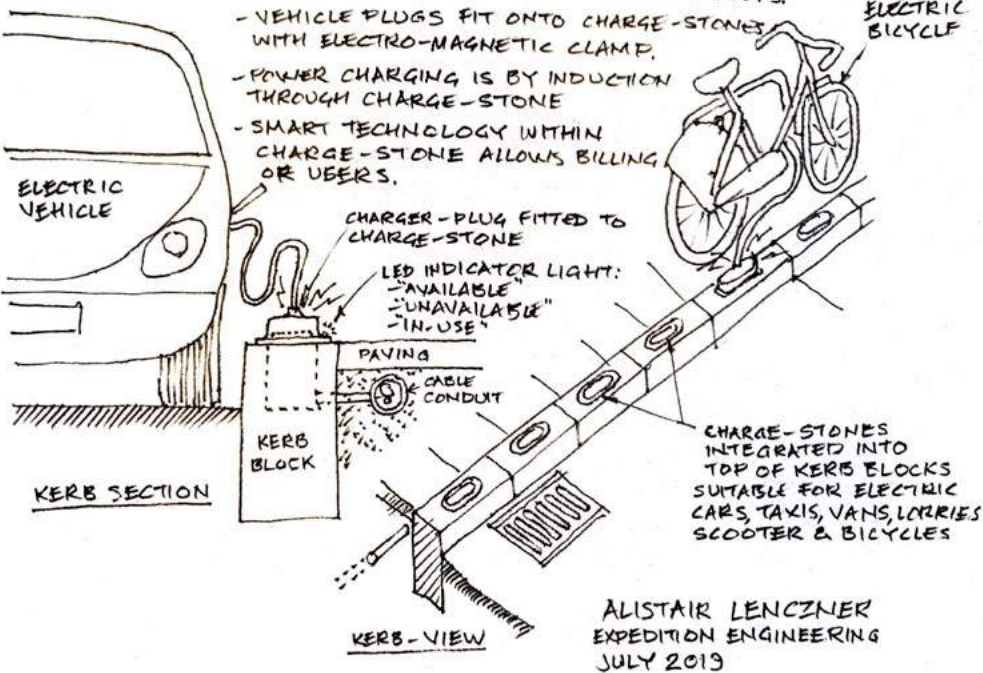 - VEHICLE PLUGS FIT ONTO CHARGE-STONES
WITH ELECTRO-MAGNETIC CLAMP.
- POWER CHARGING IS BY INDUCTION
THROUGH CHARGE-STONE
- SMART TECHNOLOGY WITHIN
CHARGE-STONE ALLOWS BILLING
OR USERS.
ELECTRIC
BICYCLE
ELECTRIC
VEHICLE
CHARGER-PLUG FITTED TO
CHARGE-STONE
LED INDICATOR LIGHT:
-"AVAILABLE"
-"UNAVAILABLE"
-"IN-USE"
PAVING
CABLE
CONDUIT
KERB
BLOCK
KERB SECTION
CHARGE-STONES
INTEGRATED INTO
TOP OF KERB BLOCKS
SUITABLE FOR ELECTRIC
CARS, TAXIS, VANS, LORRIES
SCOOTER & BICYCLES
KERB-VIEW
ALISTAIR LENCZNER
EXPEDITION ENGINEERING
JULY 2019